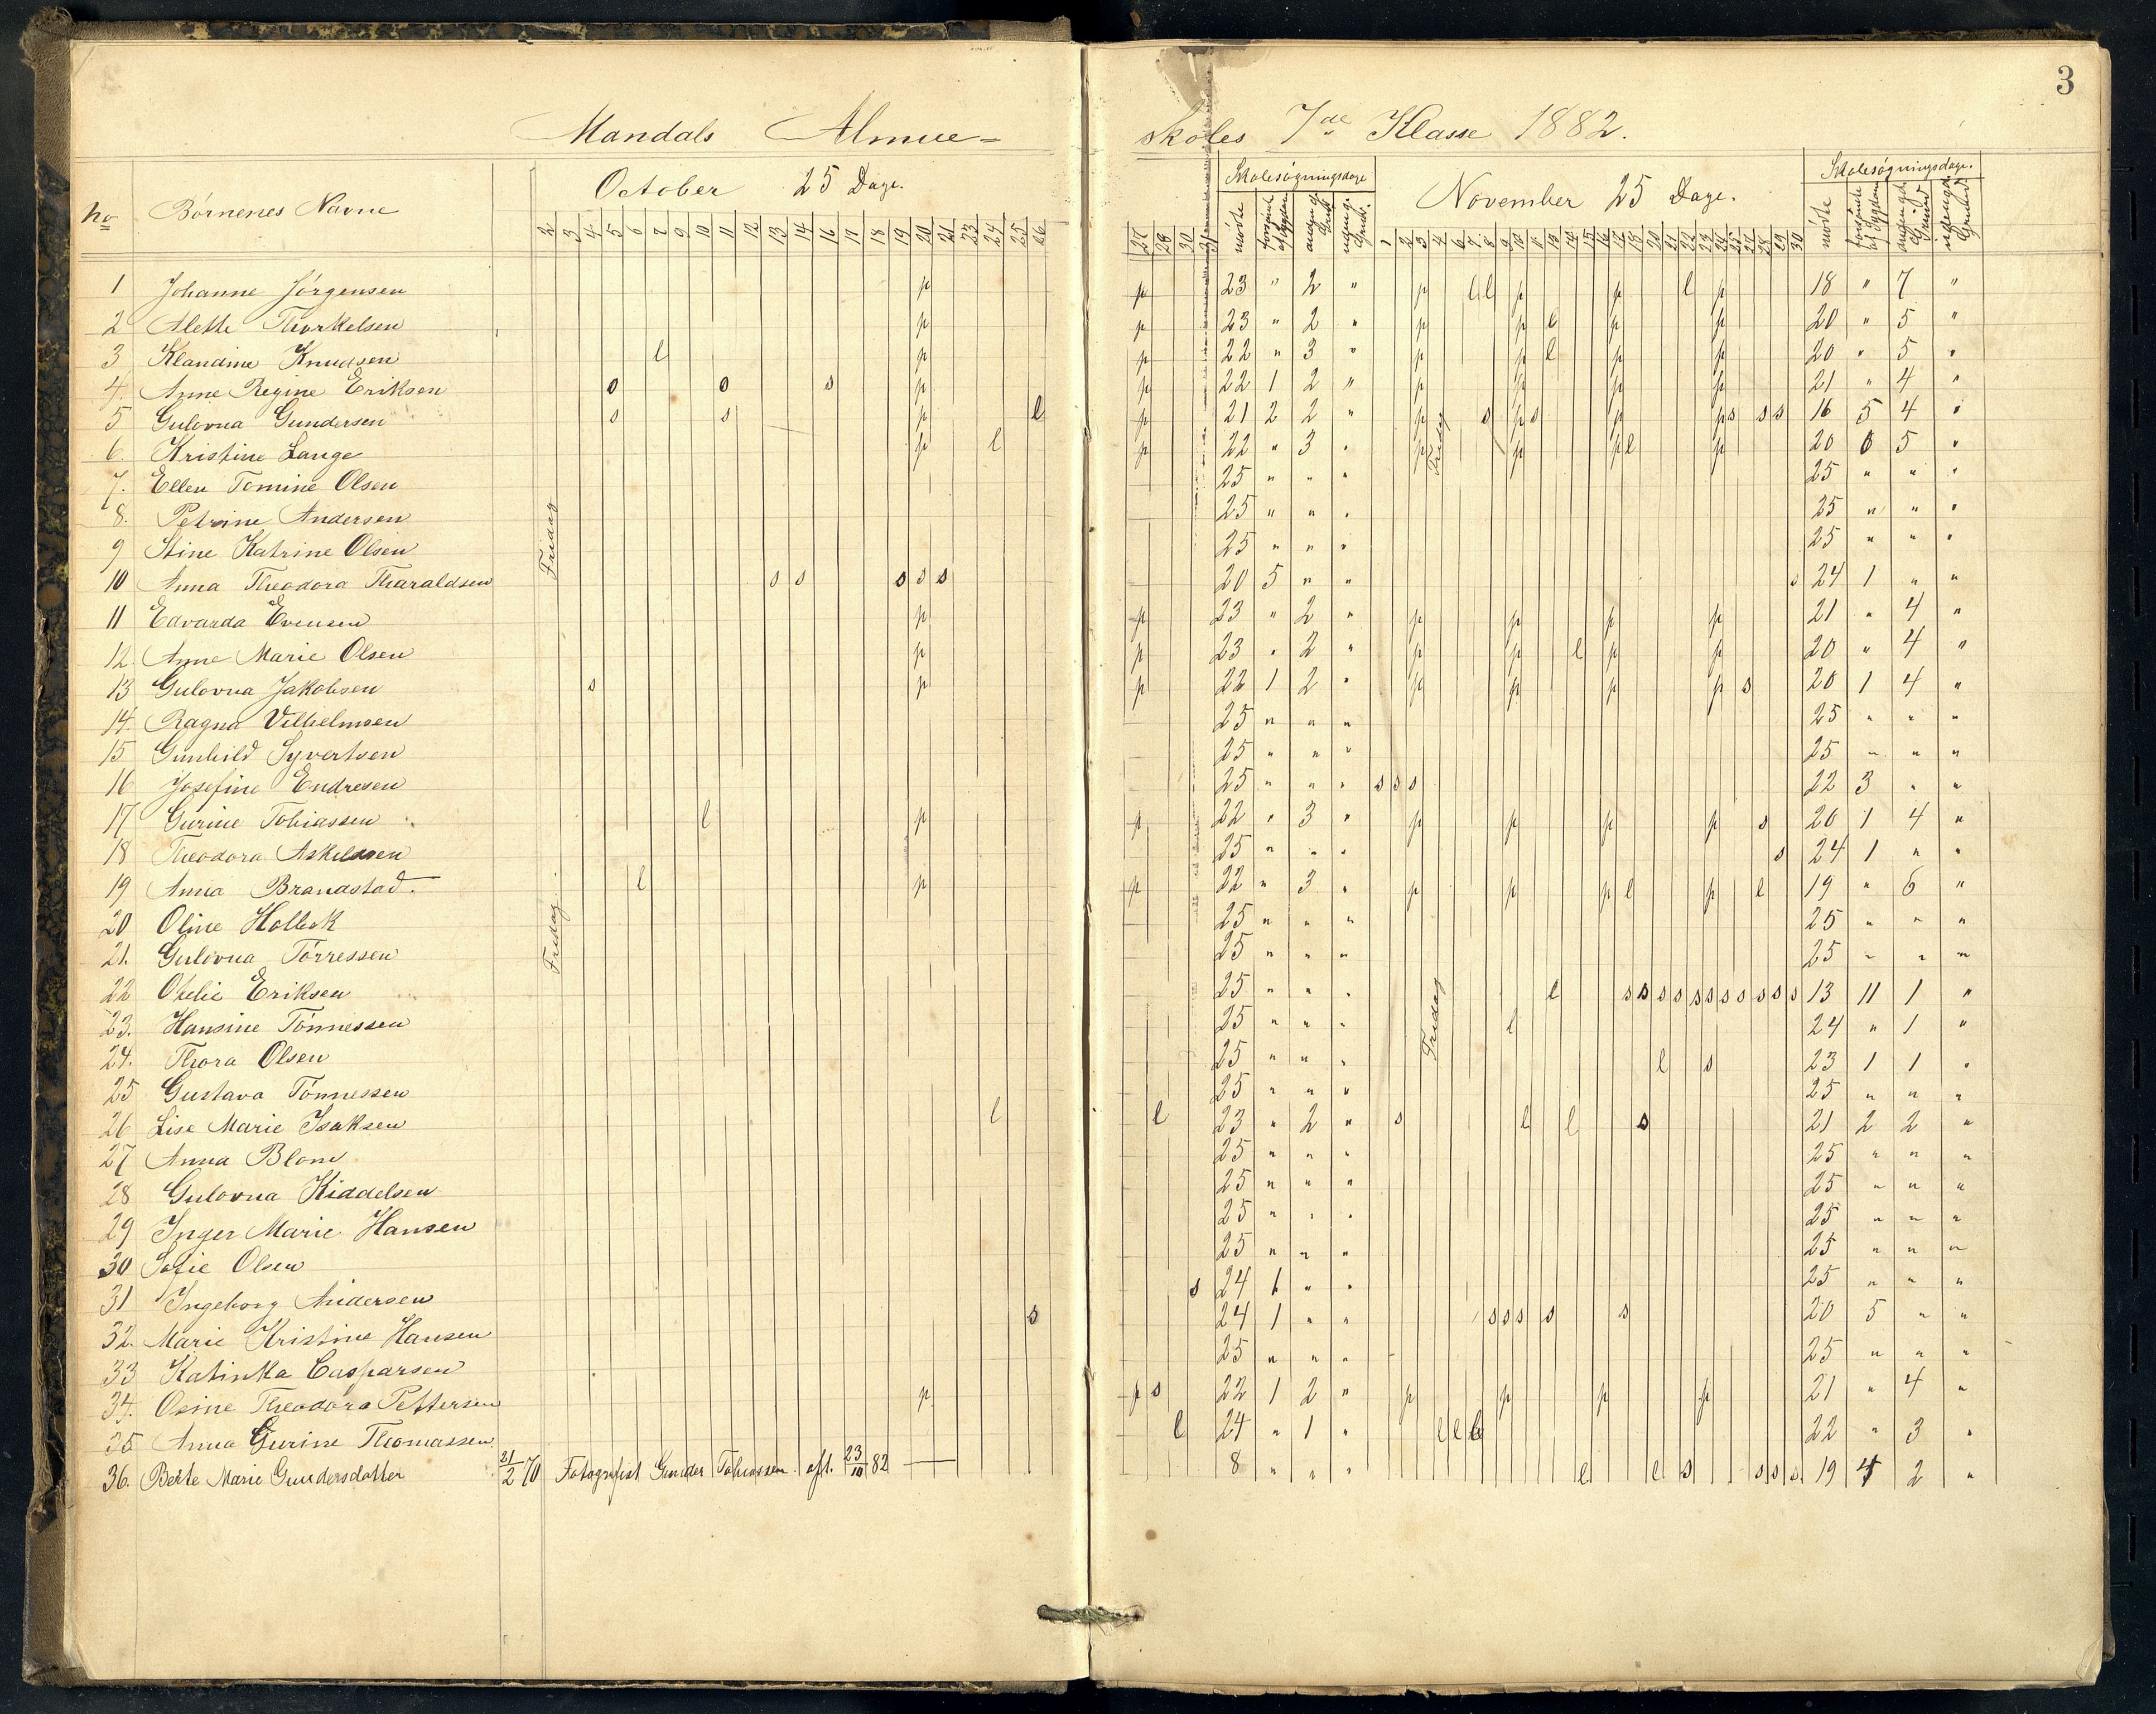 3
Mandals Almue- Skoles 7de Klasse 1882.
No Börnenes Navne October 25 Dage. Skolesögningsdage November 25 Dage. Skolesögningsdage.
2 3 4 5 6 7 9 10 11 12 13 14 16 17 18 19 20 21 23 24 25 26 27 28 30 31 mödte
1 Johanne Jörgensen p p 23 " 2 " p l l p p l p 18 " 7 "
2 Alette Thorkelsen p p 23 " 2 " p p l p p 20 " 5 "
3 Klandine Knudsen l p p 22 " 3 " p p l p p 20 " 5 "
4. Anne Regine Eriksen s s s p p 22 1 2 " p p p p 21 " 4 "
5 Gulovna Gundersen s s p l p 21 2 2 " p s p s p p s s s 16 5 4 "
6. Kristine Lange p l p 22 " 3 " p Friday p p l p 20 0 5 "
7. Ellen Tomine Olsen 25 " " " 25 " " "
8. Petrine Andersen Fridag 25 " " " 25 " " "
9 Stine Katrine Olsen 25 " " " 25 " " "
10 Anna Theodora Tharaldsen s s s s s 20 5 " " s 24 1 " "
11 Edvarda Evensen p p 23 " 2 " p p p p 21 " 4 "
12. Anne Marie Olsen p p 23 " 2 " p p l p p 20 " 4 "
13 Gulovna Jakobsen s p p 22 1 2 " p p p p s 20 1 4 "
14. Ragna Vilhelmsen 25 " " " 25 " " "
15 Gunhild Syvertsen 25 " " " 25 " " "
16 Josefine Endresen 25 " " " s s s 22 3 " "
17 Gurine Tobiassen l p p 22 " 3 " p p p p s 20 1 4 "
18 Theodora Askildsen 25 " " " s 24 1 " "
19 Anna Brandstad. l p p 22 " 3 " p p p l p l 19 " 6 "
20 Oline Holbek 25 " " " 25 " " "
21. Gulovna Törressen Fridag 25 " " " 25 " " "
22 Otelie Eriksen 25 " " " l s s s s s s s s s s s 13 11 1 "
23. Hansine Tönnessen 25 " " " Fridag l 24 " 1 "
24. Thora Olsen 25 " " " l s 23 1 1 "
25 Gustava Tönnessen 25 " " " 25 " " "
26 Lise Marie Isaksen l l 23 " 2 " s l l s 21 2 2 "
27 Anna Blom 25 " " " 25 " " "
28 Gulovna Kiddelsen 25 " " " 25 " " "
29 Inger Marie Hansen 25 " " " 25 " " "
30 Sofie Olsen 25 " " " 25 " " "
31 Ingeborg Andersen s 24 1 " " 25 " " "
32. Marie Kristine Hansen s 24 1 " " s s s s s 20 5 " "
33 Katinka Casparsen 25 " " " 25 " " "
34. Osine Theodora Pettersen p p s 22 1 2 " p p p p 21 " 4 "
35 Anna Gurine Thomassen l 24 " 1 " l l l 22 " 3 "
36. Berte Marie Gundersdatter 21/2 70 Fotografist Gunder Tobiassen. opt. 23/10 82 — 8 " " " l l s s s s 19 4 2 "